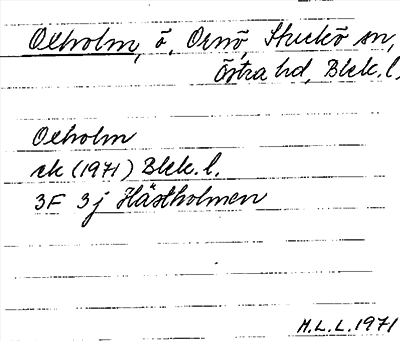 Oxholm, ö, Ornö, Sturkö sn,
Östra hd, Blek. l.
Oxholm
ek (1971) Blek. l.
3F 3j Hästholmen
M.L.L. 1971